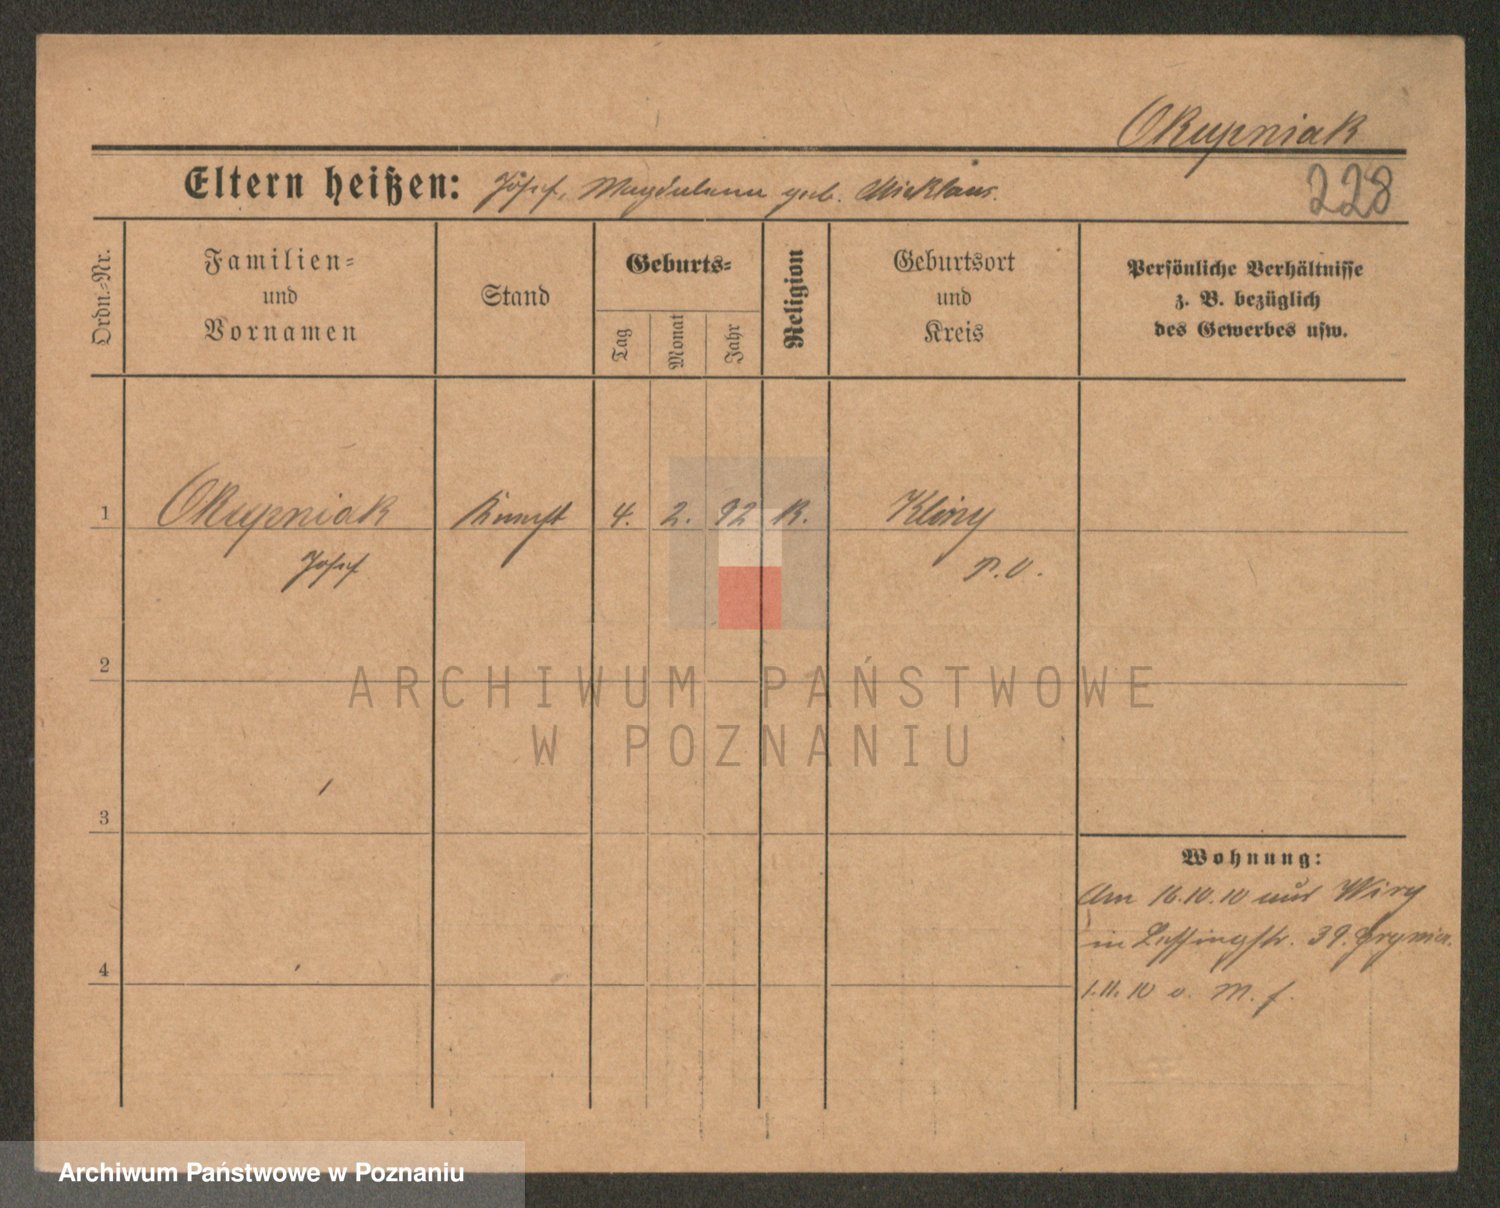 Okupniak
Eltern heißen: Josef, Magdalena geb. Micklaus.
228
Ordn.-Nr.
Familien-
und
Vornamen
Stand
Geburts-
Tag
Monat
Jahr
Religion
Geburtsort
und
Kreis
Persönliche Verhältnisse
z. B. bezüglich
des Gewerbes usw.
1 Okupniak 4. 2. 92 K. Kliny
Josef P.O.
2
ARCHIWUM PAŃSTWOWE
W POZNANIU
3
Wohnung:
Am 16.10.10 aus Wiry
in Lessingstr. 39.
4
1.11.10 v. M. f.
Archiwum Państwowe w Poznaniu